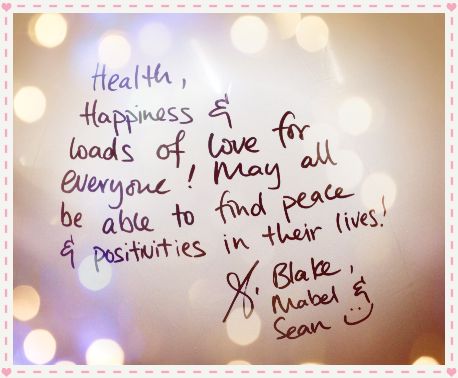 Health,
Happiness &
loads of love for
everyone! May all
be able to find peace
& positivities in their lives!
Blake,
Mabel &
Sean :)